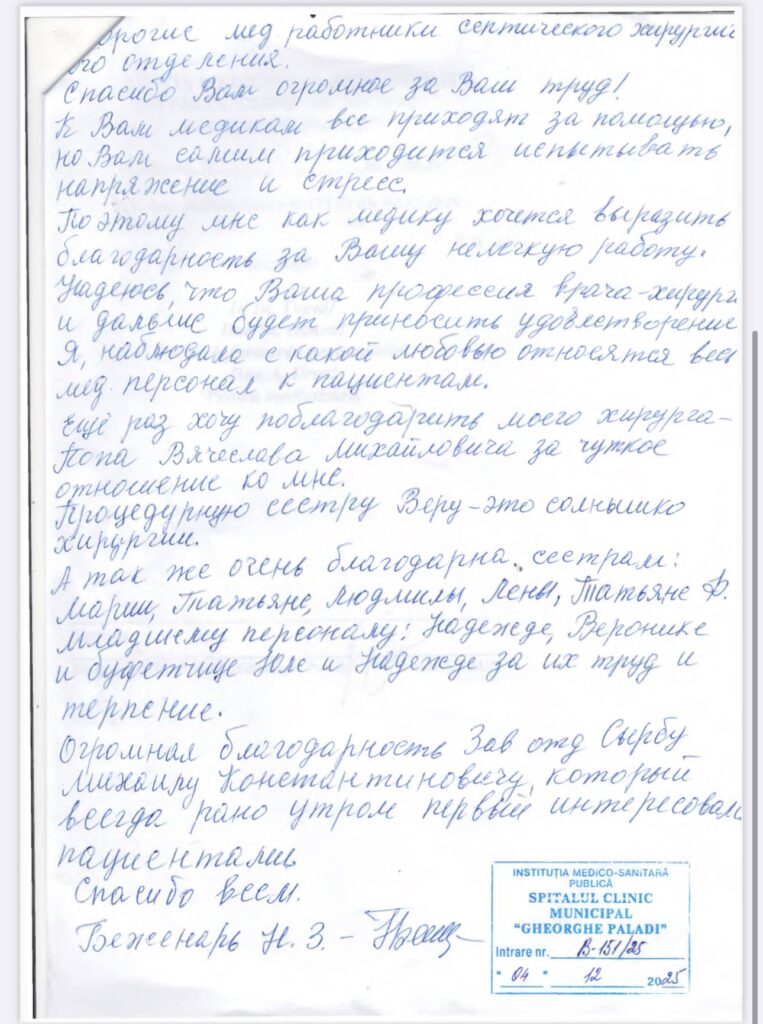 орогие мед работники септического хирургиче
ого отделения.
Спасибо Вам огромное за Ваш труд!
К Вам медикам все приходят за помощью,
но Вам самим приходится испытывать
напряжение и стресс.
Поэтому мне как медику хочется выразить
благодарность за Вашу нелегкую работу.
Надеюсь, что Ваша профессия врача-хирурга
и дальше будет приносить удовлетворение
Я, наблюдала с какой любовью относятся весь
мед. персонал к пациентам.
Ещё раз хочу поблагодарить моего хирурга-
Попа Вячеслава Михайловича за чуткое
отношение ко мне.
Процедурную сестру Веру-это солнышко
хирургии.
А так же очень благодарна сестрам:
Марии, Татьяне, Людмилы, Лены, Татьяне Ф.
младшему персоналу: Надежде, Веронике
и буфетчице Юле и Надежде за их труд и
терпение.
Огромная благодарность Зав отд Сырбу
Михаилу Константиновичу, который
всегда рано утром первый интересовалс
пациентами
Спасибо всем.
Беженарь Н. З. –
INSTITUȚIA MEDICO-SANITARĂ
PUBLICĂ
SPITALUL CLINIC
MUNICIPAL
"GHEORGHE PALADI"
Intrare nr. B-151/25
"04" 12 2025